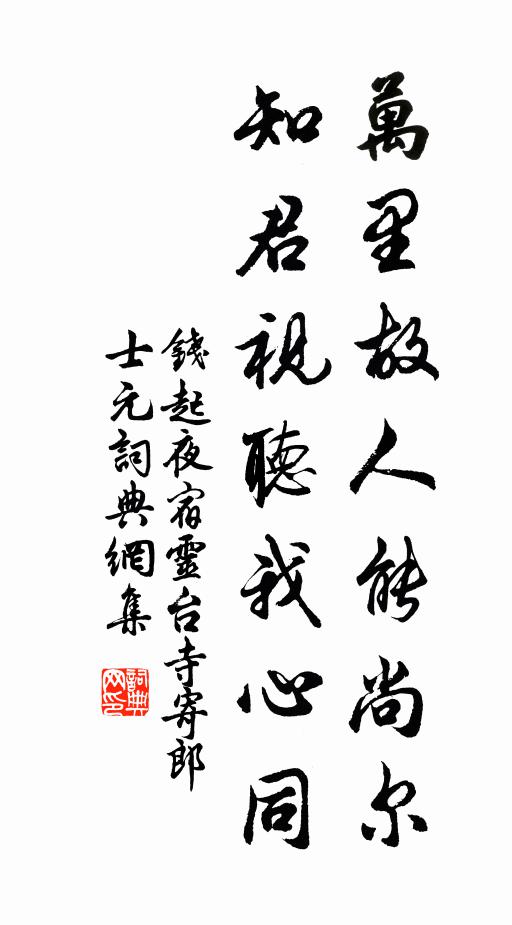 萬里故人能尚尔
知君視聽我心同
錢起夜宿靈台寺寄郎
士元詞典網集
詞典网印